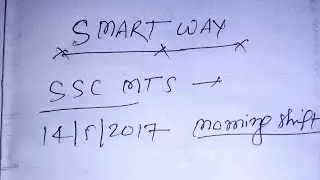 SMART WAY
SSC MTS →
14/5/2017 morning shift